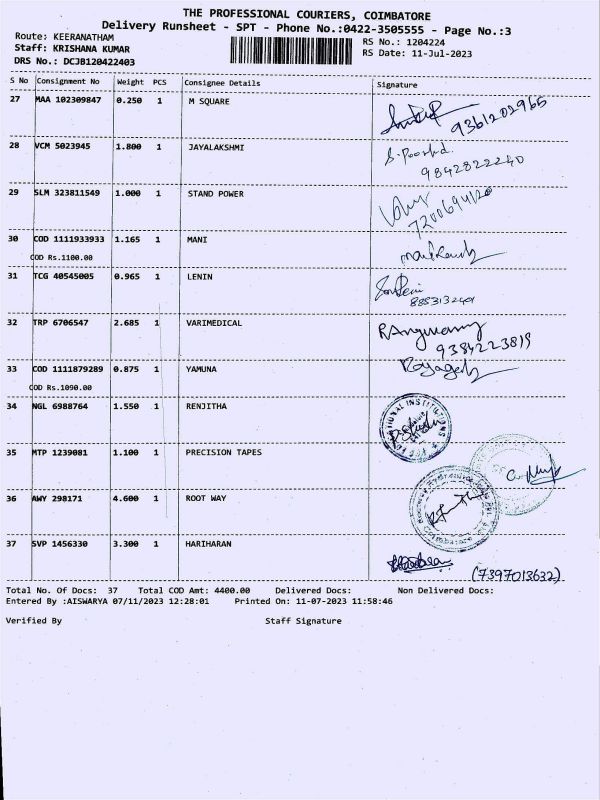 THE PROFESSIONAL COURIERS, COIMBATORE
Delivery Runsheet - SPT - Phone No.:0422-3505555 - Page No.:3
Route: KEERANATHAM
RS No.: 1204224
Staff: KRISHANA KUMAR
RS Date: 11-Jul-2023
DRS No.: DCJB120422403
S No Consignment No Weight PCS Consignee Details Signature
27 MAA 102309847 0.250 1 M SQUARE
9361202965
28 VCM 5023945 1.800 1 JAYALAKSHMI
9842822240
29 SLM 323811549 1.000 1 STAND POWER
7200694120
30 COD 1111933933 1.165 1 MANI
COD Rs.1100.00
31 TCG 40545005 0.965 1 LENIN
32 TRP 6706547 2.685 1 VARIMEDICAL
9384223819
33 COD 1111879289 0.875 1 YAMUNA
COD Rs.1090.00
34 NGL 6988764 1.550 1 RENJITHA
35 MTP 1239081 1.100 1 PRECISION TAPES
36 AWY 298171 4.600 1 ROOT WAY
37 SVP 1456330 3.300 1 HARIHARAN
(7397013632)
Total No. Of Docs: 37 Total COD Amt: 4400.00 Delivered Docs: Non Delivered Docs:
Entered By :AISWARYA 07/11/2023 12:28:01 Printed On: 11-07-2023 11:58:46
Verified By Staff Signature